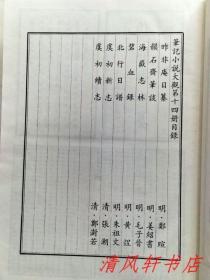 筆記小説大觀第十四冊目錄
昨非庵日纂 明·鄭瑄
韻石齋筆談 明·姜紹書
海嶽志林 明·毛子晉
碧血錄 明·黃煜
北行日譜 明·朱祖文
虞初新志 清·張潮
虞初續志 清·鄭澍若
清风轩书店